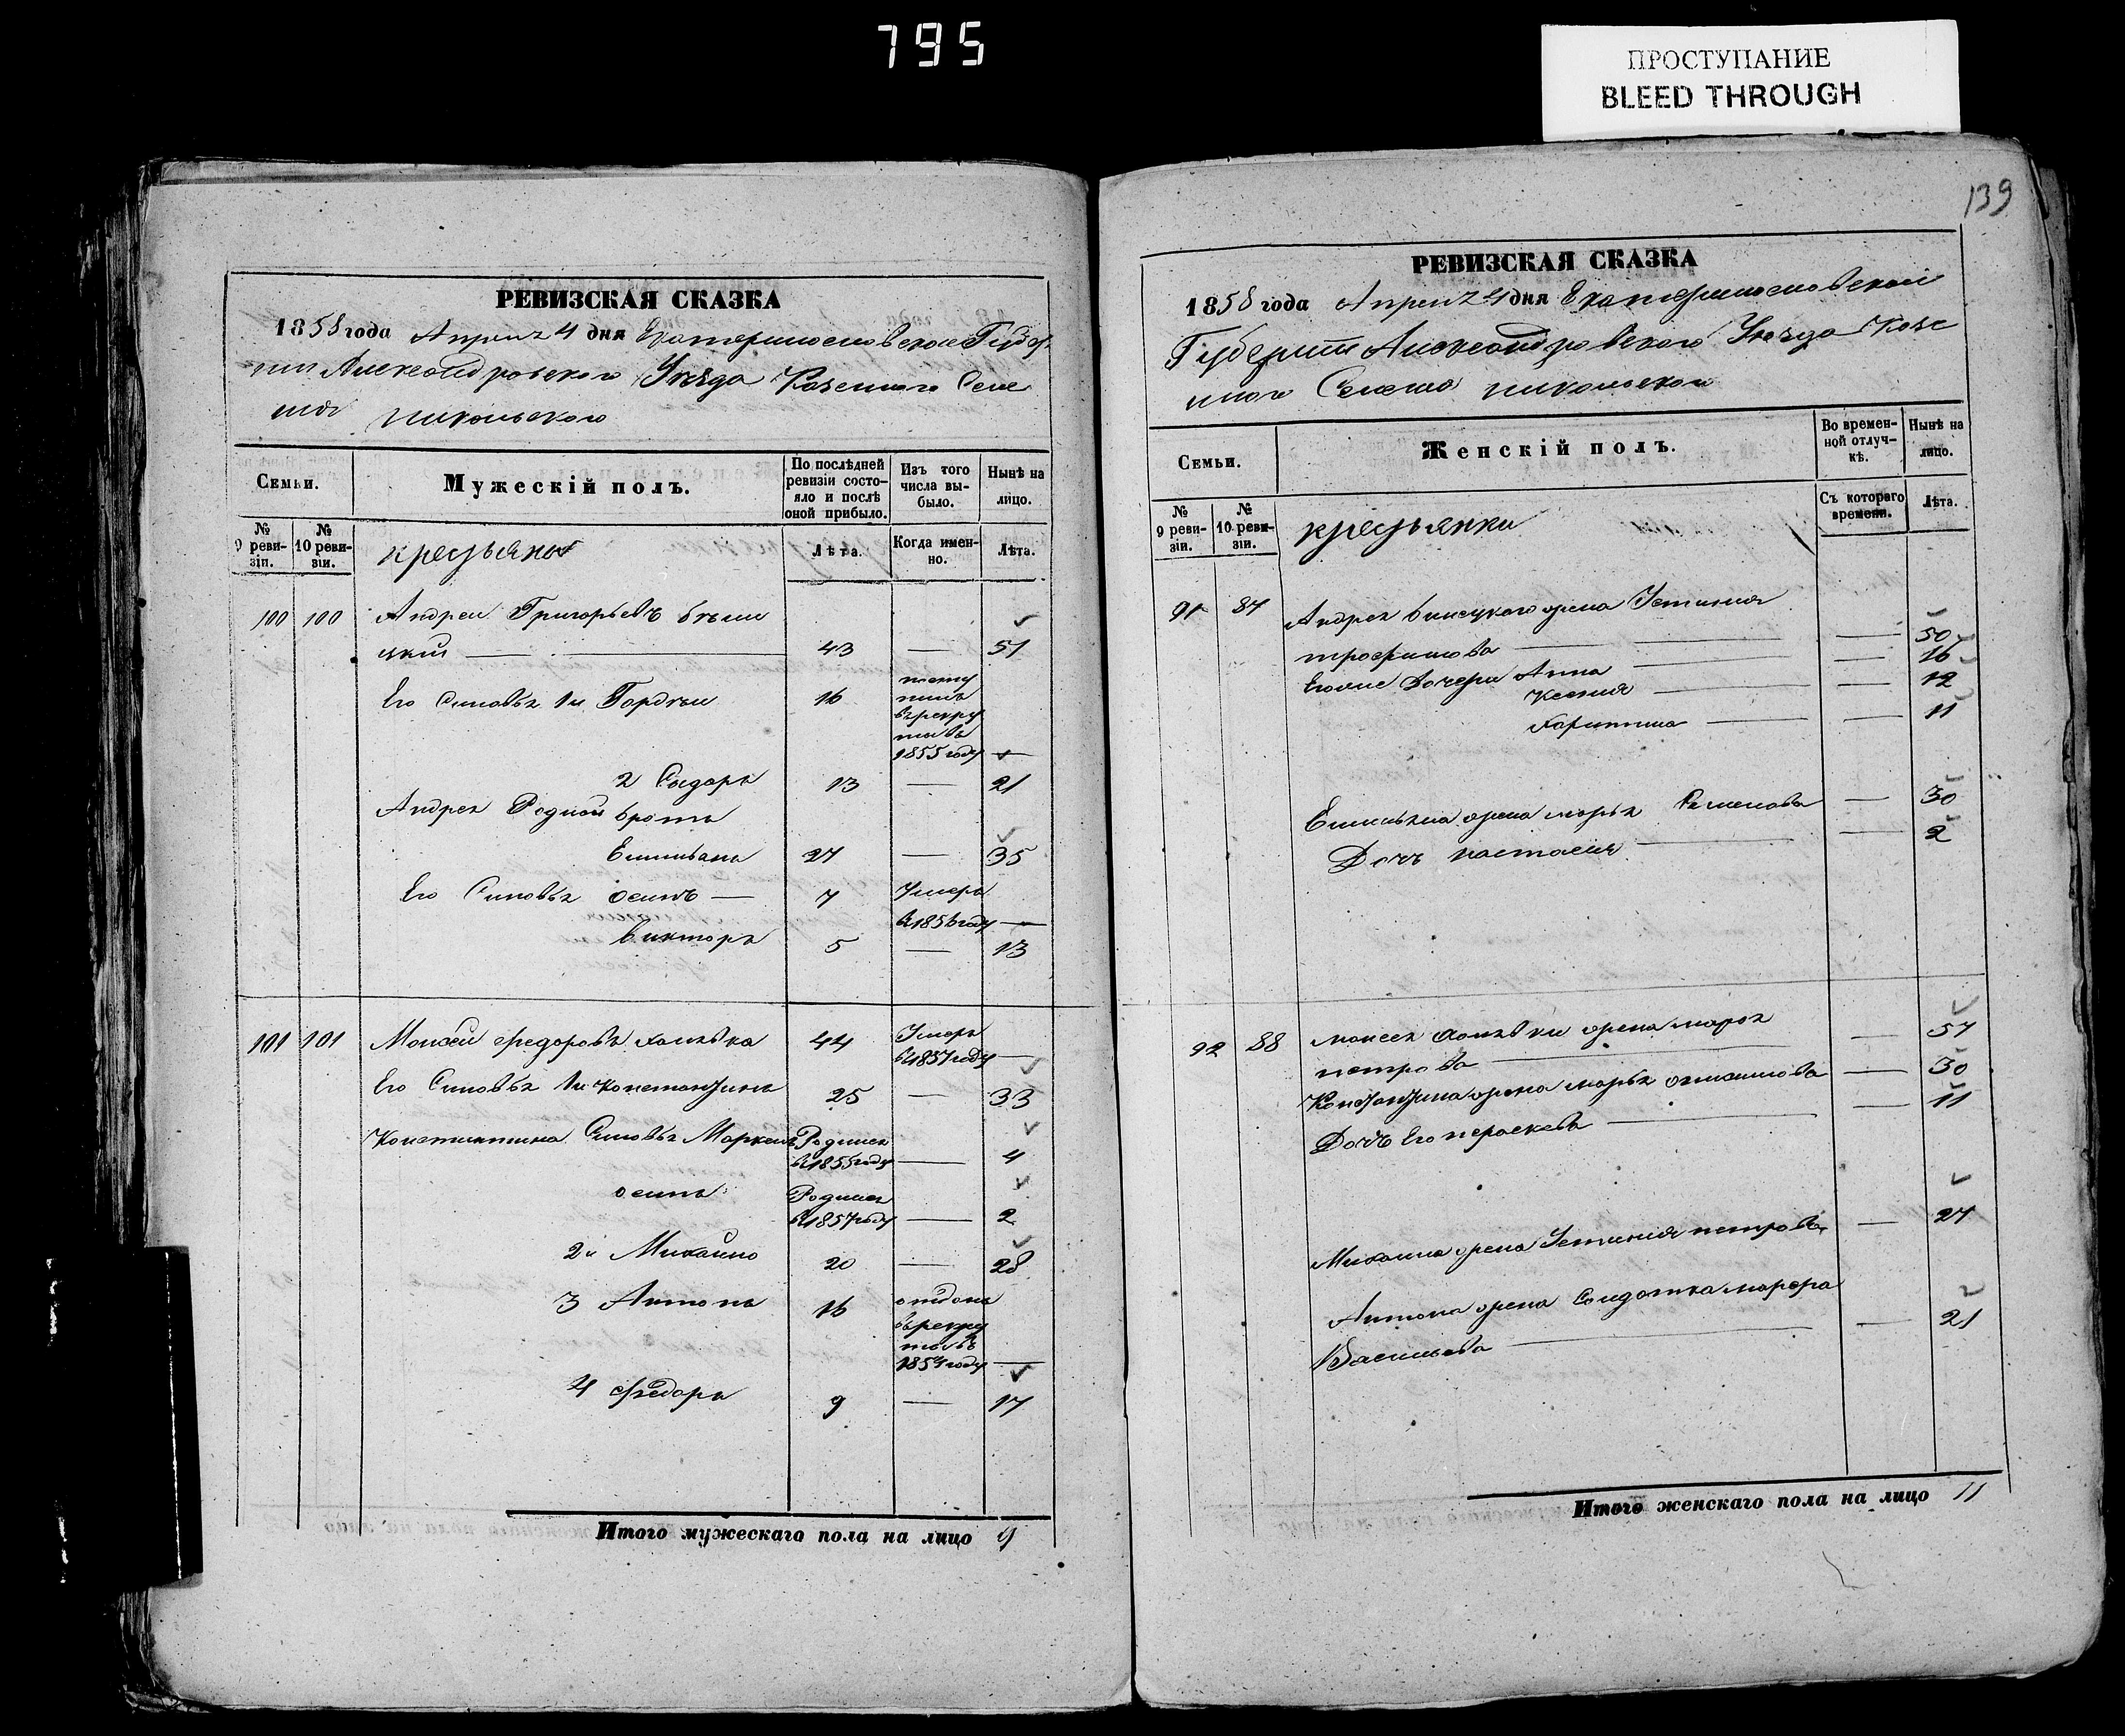 795
ПРОСТУПАНИЕ
BLEED THROUGH
139
РЕВИЗСКАЯ СКАЗКА
1858 года Апреля 4 дня Екатеринославской Губер
нии Александровского Уезда Казенного Селе
ния Никольского
Семьи.
Мужескій полъ.
По послѣдней ревизіи состояло и послѣ оной прибыло.
Изъ того числа выбыло.
Нынѣ на лицо.
№ 9 ревизіи.
№ 10 ревизіи.
крестьяне
Лѣта.
Когда именно.
Лѣта.
100 100 Андреи Григорьевъ
43 — 51
Его Сыновья 1й Гордеи 16 посту
пилъ
в рекру
ты въ
1855 году —
2 Сидоръ 13 — 21
Андрея Родной братъ
Емельянъ 27 — 35
Его Сыновья осипъ — 7 Умеръ
в 1856 году —
викторъ 5 — 13
101 101 Моисеи федоровъ 44 Умеръ
в 1857 году —
Его Сыновья 1й Константинъ 25 — 33
Константина Сыновья Маркелъ Родился
в 1855 году — 4
осипъ Родился
в 1857 году — 2
2й Михайло 20 — 28
3 Антонъ 16 отданъ
в рекру
ты въ
1854 году —
4 федоръ 9 — 17
Итого мужескаго пола на лицо 9
РЕВИЗСКАЯ СКАЗКА
1858 года Апреля 4 дня Екатеринославской
Губернии Александровского Уезда Казе
нного Селения никольского
Семьи.
Женскій полъ.
Во временной отлучкѣ.
Нынѣ на лицо.
№ 9 ревизіи.
№ 10 ревизіи.
крестьянки
Съ котораго времени.
Лѣта.
91 87 Андрея жена Устиния
трофимова — — 50
Его Дочери Анна — — 16
Ксения — — 12
Харитина — — 11
Емельяна жена марья Семенова — 30
Дочь настасия — — 2
92 88 моисея жена марья
петрова — — 57
Константина жена марья — 30
Дочь Его пераскева — — 11
Михаила жена Устиния петрова — 27
Антона жена Солдатка марфа
Васильева — — 21
Итого женскаго пола на лицо 11